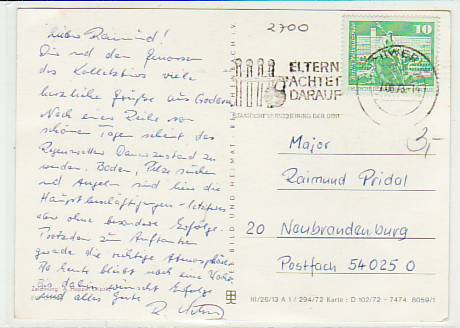 Lieber Raimund!
Dir und den Genossen
des Kollektivs viele
herzliche Grüße aus Godern.
Nach einer Reihe von
schönen Tagen scheint das
Regenwetter Dauerzustand zu
werden. Baden, Pilze suchen
und Angeln sind hier die
Hauptbeschäftigungen - letzteres
aber ohne besondere Erfolge.
Trotzdem zum Auftanken
gerade die richtige Atmosphäre.
bleibt noch eine Woche.
Bis dahin wünscht Erfolge
und alles Gute
R.
2700
ELTERN
ACHTET
DARAUF
10
5,-
Major
Raimund Pridal
20 Neubrandenburg
Postfach 54025 O
III/26/13 A 1 / 294/72 Karte: D 102/72 - 7474 8059/1